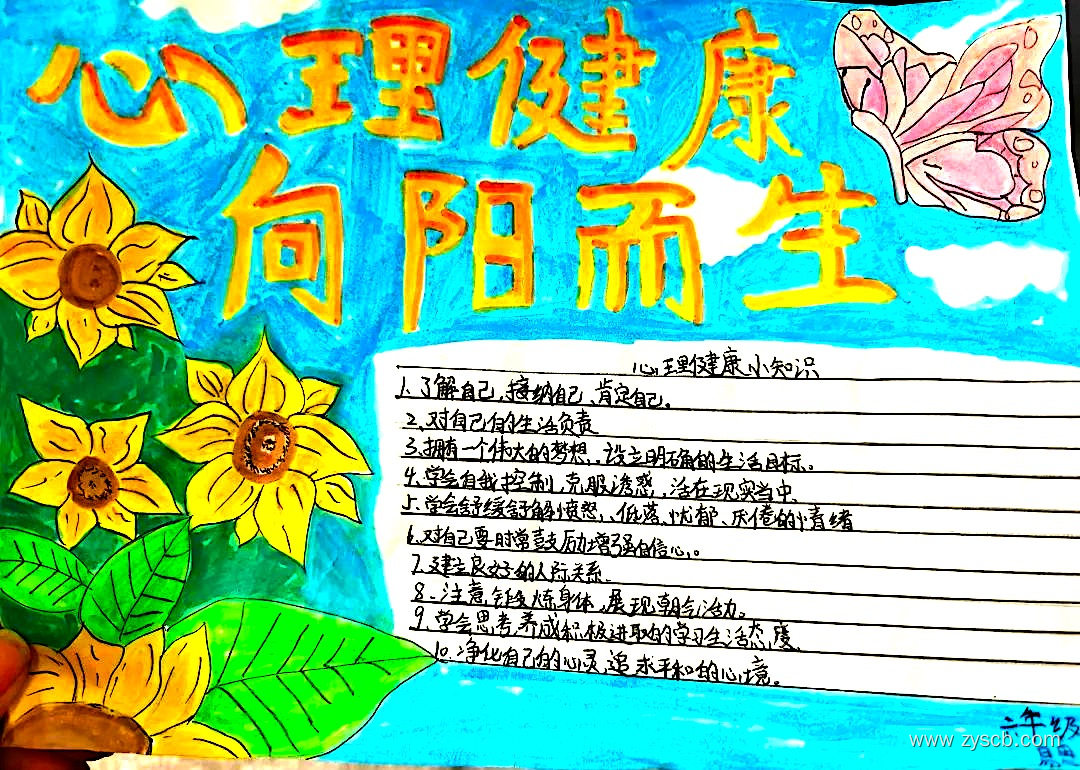 心理健康
向阳而生
心理健康小知识
1、了解自己,接纳自己、肯定自己。
2、对自己的生活负责
3、拥有一个伟大的梦想、设立明确的生活目标。
4、学会自我控制,克服诱惑,活在现实当中、
5、学会舒缓舒解愤怒、低落、忧郁、厌倦的情绪
6、对自己要时常鼓励增强自信心。
7、建立良好的人际关系、
8、注意锻炼身体,展现朝气活力。
9、学会思考养成积极进取的学习生活态度、
10、净化自己的心灵,追求平和的心境。
六年级
www.zyscb.com